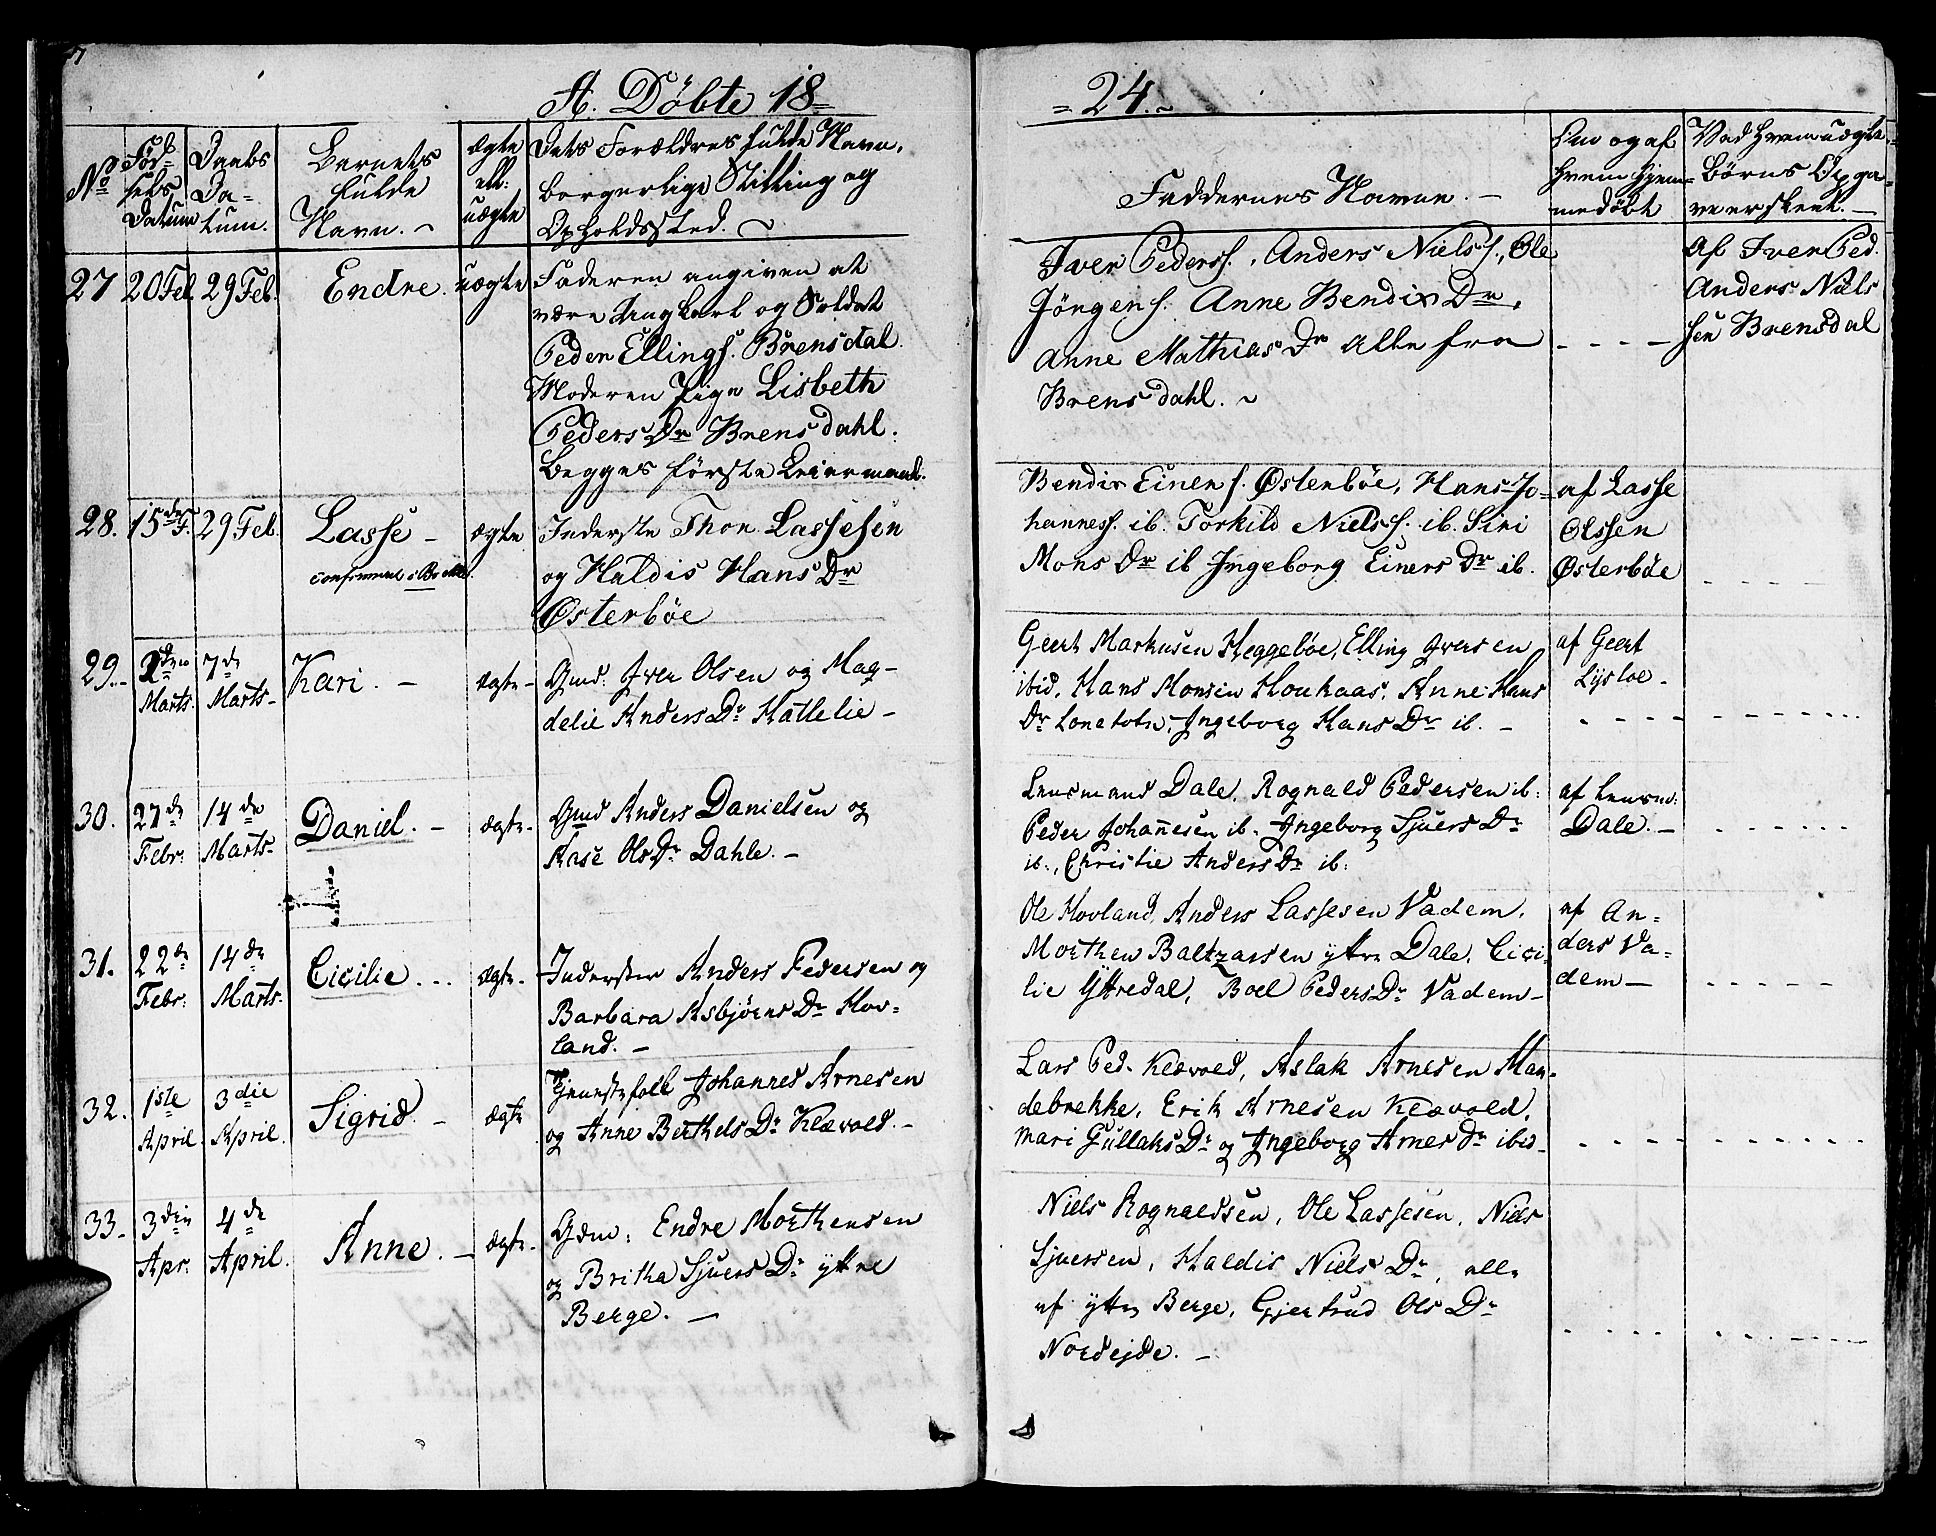 A. Döbte 18=
=24.~
No
Föd=
sels
Datum
Daabs
Da=
tum.
Barnets
fulde
Navn. ~
ægte
ell:
uægte
Dets Forældres fulde Navn,
borgerlige Stilling og
Opholdssted. ~
Faddernes Navne. —
Om og af
hvem hjem=
medöbt
Ved hvem uægte
Börns Opga=
ve er skeet. —
27
20 Feb.
29 Feb.
Endre.
uægte
Faderen angiven at
være Ungkarl og Soldat
Peder Ellings. Brensdal.
Moderen Pige Lisbeth
Peders Dr Brensdahl.
begges förste Leiermaal.
Iver Peders., Anders Niels., Ole
Jörgens. Anne Bendix Dr,
Anne Mathias Dr alle fra
Brensdahl. ~
- - - -
af Iver Ped.
Anders Niel
sen Brensdal
28.
15de F.
29 Feb.
Lasse —
ægte
Inderste Thon Lassesen
og Haldis Hans Dr
Österböe
Bendix Einers. Österböe, Hans Jo=
hanness. ib. Torkild Niels. ib. Siri
Mons Dr ib Ingeborg Einers Dr ib.
af Lasse
Olssen
Österböe
- - - - -
29.
Marts.
7de
Marts-
Kari. —
ægte-
Gmd. Iver Olsen og Mag=
delie Anders Dr Hattelie —
Geert Markusen Heggeböe, Elling Iversen
ibid, Hans Monsen Houkaas, Anne Hans
Dr Ingeborg Hans Dr ib. —
af Geert
30.
27de
Febr:
14de
Marts-
Daniel. —
ægte-
Gmd Anders Danielsen og
Aase Ols Dr Dahle. —
Lensmand Dale, Rognald Pedersen ib.
Peder Johannesen ib. Ingeborg Sjuers Dr
ib., Christie Anders Dr ib.
af Lensm:
Dale. —
31.
22de
Febr:
14de
Marts-
Cicilie...
ægte-
Inderster Anders Pedersen og
Barbara Asbjörns Dr Hov=
land. —
Ole Hovland, Anders Lassesen Vadem,
Morthen Baltzarsen yttre Dale, Cici=
lie Yttredal, Boel Peders Dr Vadem —
af An=
ders Va=
dem —
32.
1ste
April.
3die
April.
Sigrid. —
ægte
Tjenestefolk Johannes Arnesen
og Anne Berthels Dr Klævold. —
Lars Ped. Klævold, Aslak Arnesen Man=
debrekke, Erik Arnesen Klævold,
Mari Gullaks Dr og Ingeborg Arnes Dr ibid —
33.
3die
Apr:
4de
April.
Anne. —
ægte-
Gdm: Endre Morthensen
og Britha Sjuers Dr yttre
Berge. —
Niels Rognaldsen, Ole Lassesen, Niels
Sjuersen, Haldis Niels Dr, alle
af yttre Berge, Gjertrud Ols Dr
Nordeide. —